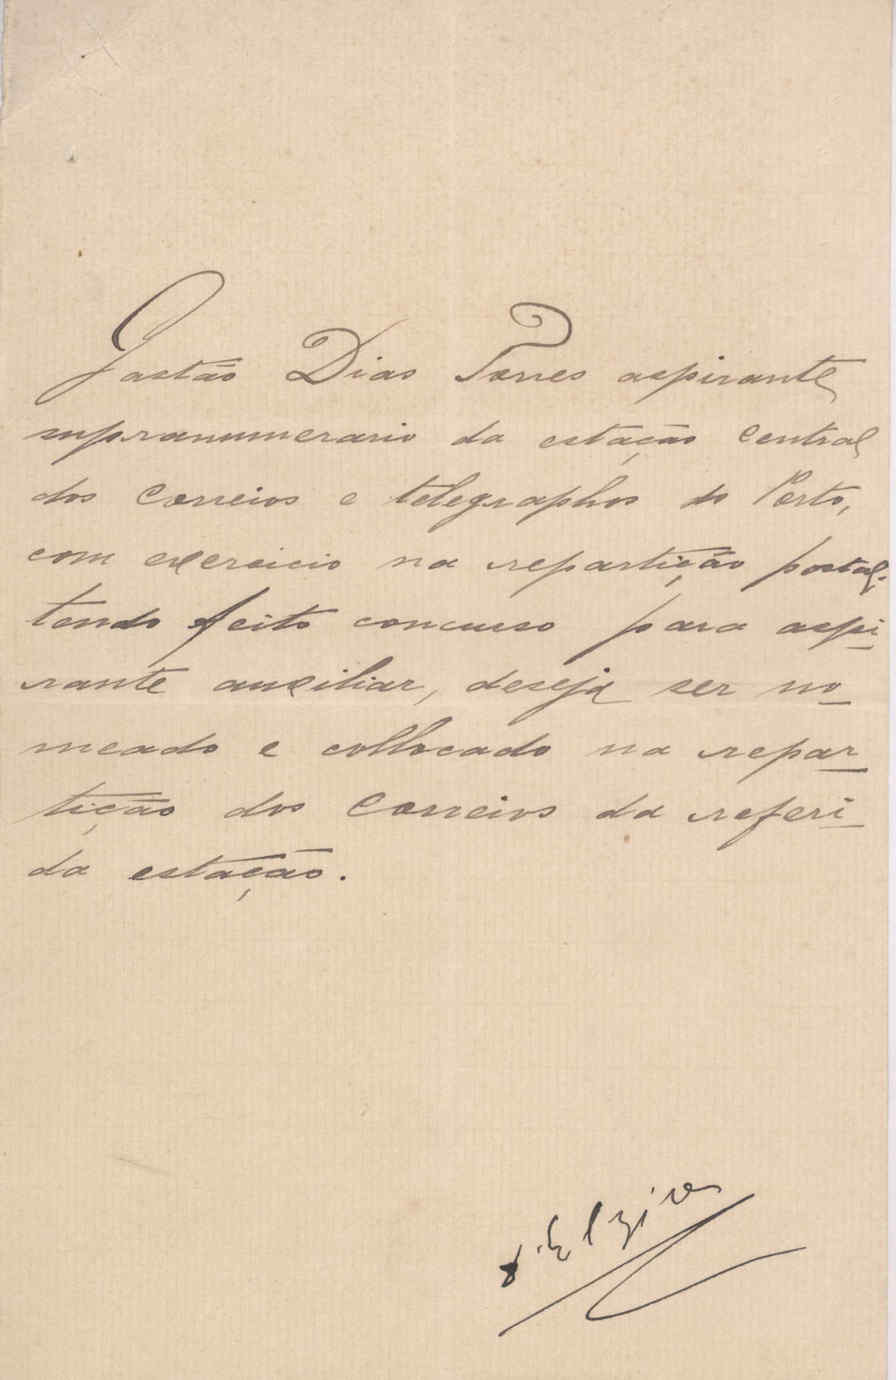 Gastão Dias Torres aspirante
supranumerario da estação central
dos Correios e telegraphos do Porto,
com exercicio na repartição postal,
tendo feito concurso para aspi-
rante auxiliar, deseja ser no-
meado e collocado na repar-
tição dos Correios da referi-
da estação.